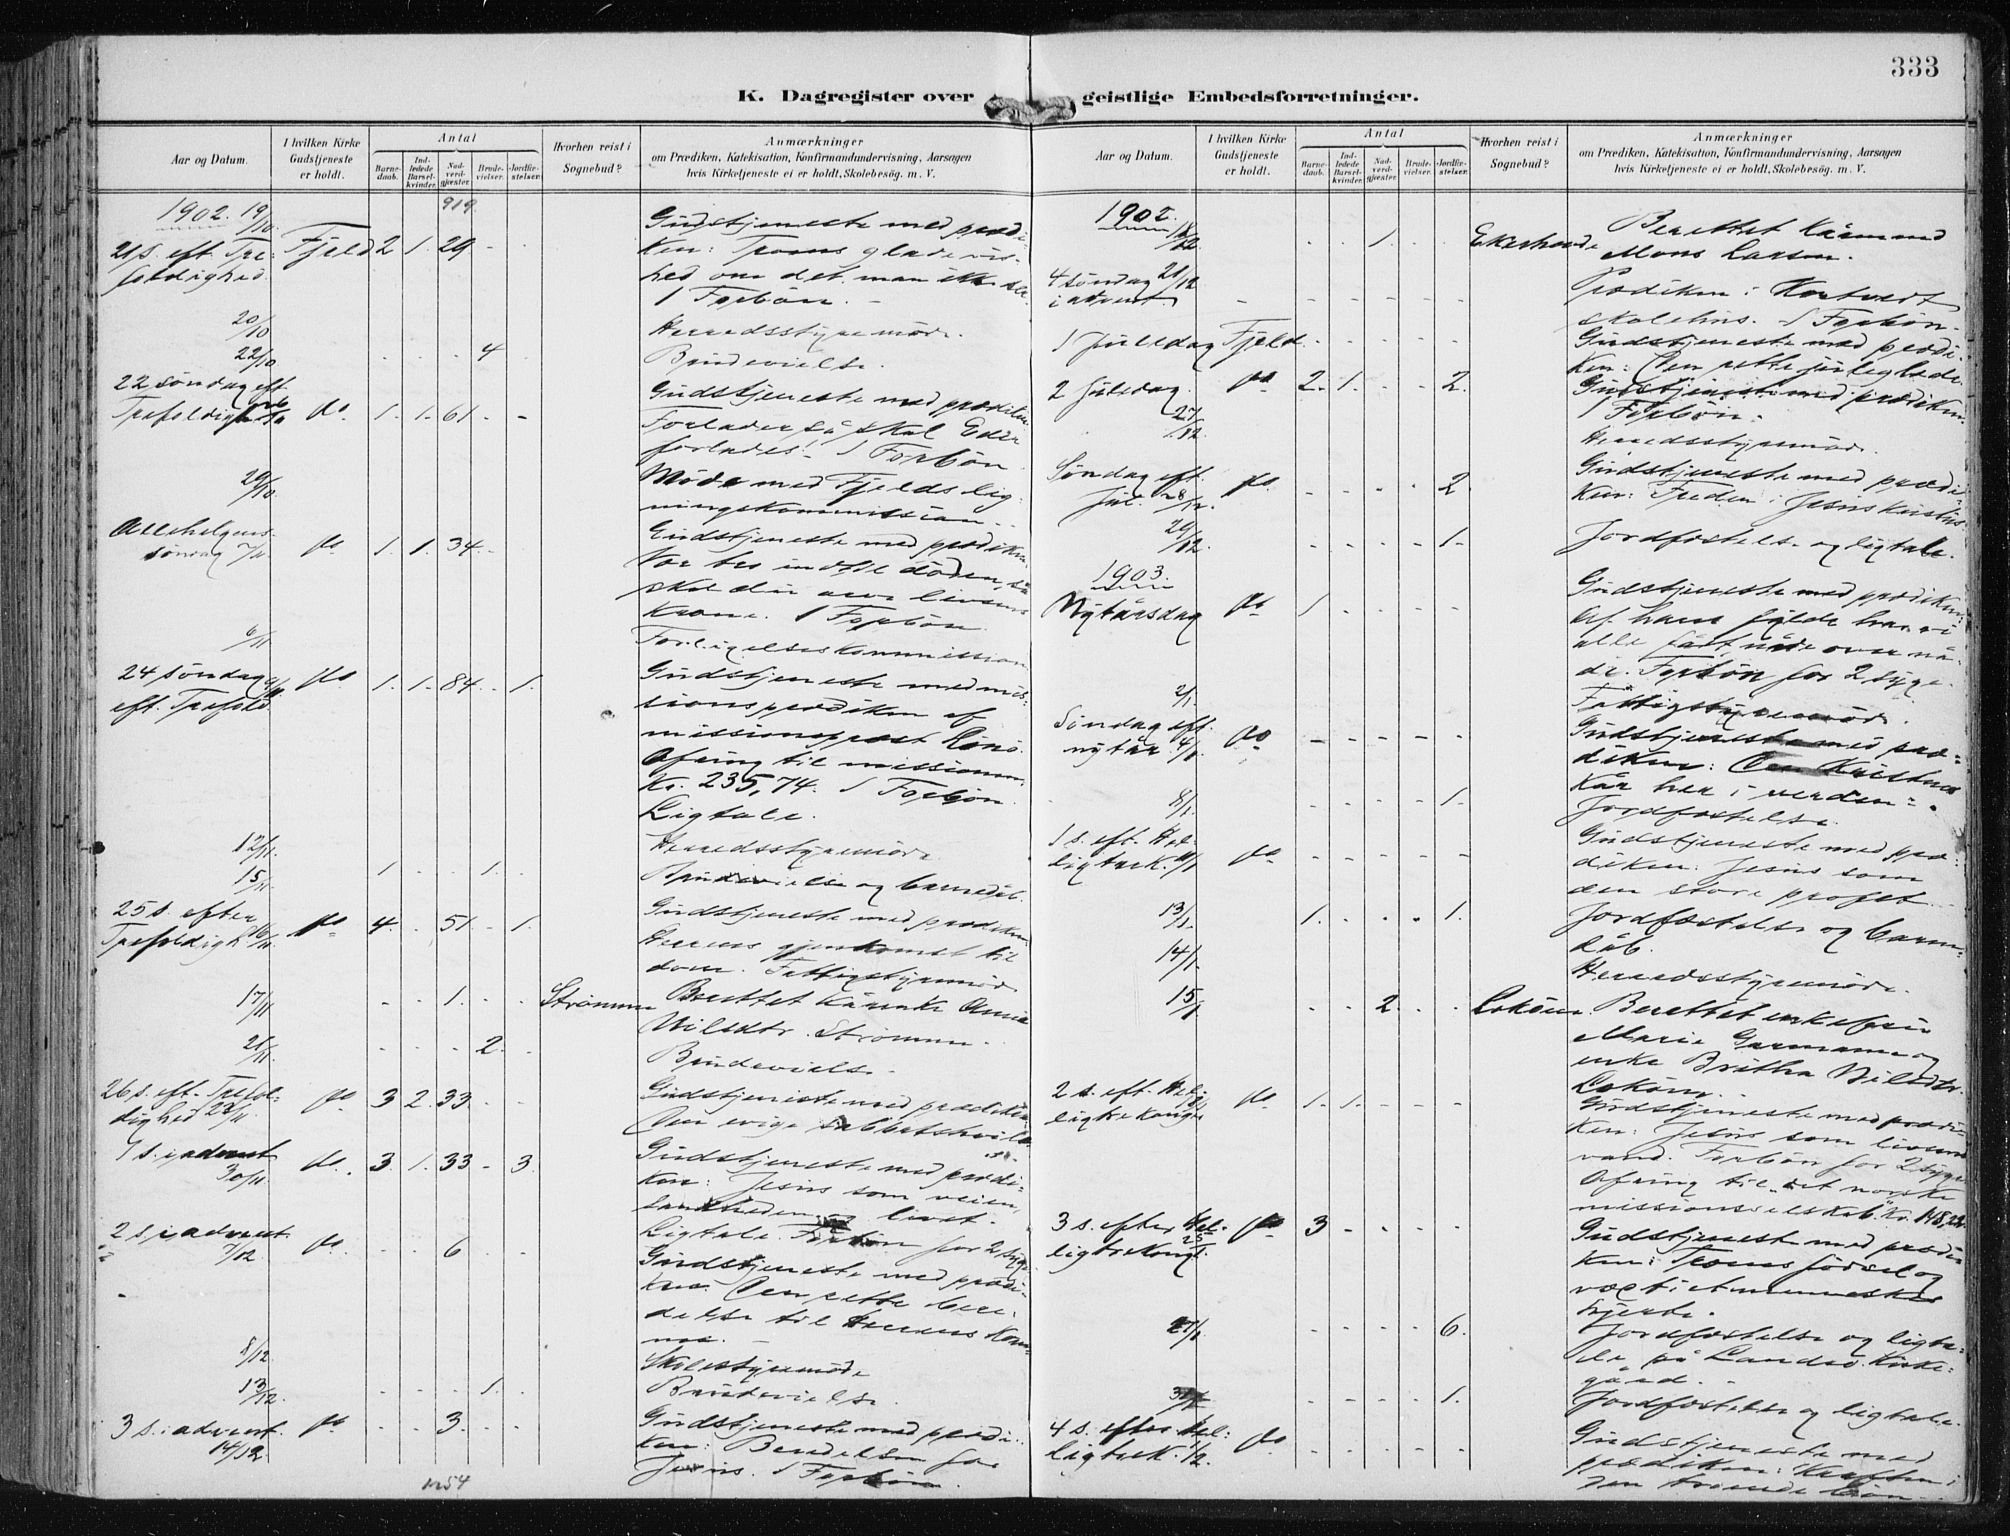 333
K. Dagregister over geistlige Embedsforretninger.
Aar og Datum.
I hvilken Kirke
Gudstjeneste
er holdt.
Antal
Barne-
daab.
Ind-
ledede
Barsel-
kvinder.
Nad-
verd-
gjester.
Brude-
vielser.
Jordfæ-
stelser.
Hvorhen reist i
Sognebud?
Anmærkninger
om Prædiken, Katekisation, Konfirmandundervisning, Aarsagen
hvis Kirketjeneste ei er holdt, Skolebesøg. m. V.
1902. 19/10
919.
21 s. eft. Tre-
foldighed. Fjeld 2 1. 29 - -
Gudstjeneste med prædi-
ken: Troens glade vis-
hed om det man ikke ser
1 Forbøn. -
20/10 Herredsstyremøde.
22/10 4 Brudevielse.
22 søndag eft.
Trefoldigh. do. 1. 1. 61. - -
Gudstjeneste med prædiken
Forlader, så skal Eder
forlades! - 1 Forbøn
29/10 Møde med Fjelds lig-
ningskommission.
Allehelgens-
søndag do 1. 1. 34.
Gudstjeneste med prædiken
Vær tro indtil døden, så
skal du arve livsens
krone. 1 Forbøn.
6/11 Forligelseskommission
24 søndag
eft. Trefold. do. 1. 1. 84. - 1.
Gudstjeneste med mis-
sionsprædiken af
missionsprest
Ofring til missionen
Kr. 235,74. 1 Forbøn.
Ligtale.
12/11. Herredsstyremøde.
15/11. 1 1. Brudevielse og barnedåb.
25 s. efter
Trefoldigh. 16/11 do 4. 51. - 1.
Gudstjeneste med prædiken
Herrens gjenkomst til
dom. Fattigstyremøde
17/11 - - 1. - - Strømmen Berettet
Nilsdtr. Strømmen.
21/11 2. Brudevielse.
26 s. eft. Trefol-
dighed 23/11. do. 3 2. 33. - -
Gudstjeneste med prædiken
Den evige sabbatshvile
1 s. i advent
30/11. do. 3. 1. 33 - 3.
Gudstjeneste med prædi-
ken: Jesus som veien,
sandheden og livet.
Ligtale. Forbøn for 2 syge
2 s. i advent
7/12. do. - - 6 - -
Gudstjeneste med prædi-
ken. Den rette bere-
delse til Herrens kom-
me.
8/12 Skolestyremøde
13/12. 1. Brudevielse.
3 s. i advent.
14/12 do. - - 3. - -
Gudstjeneste med prædi-
ken: Beredelsen for
Jesus. 1 Forbøn.
1254
Aar og Datum.
I hvilken Kirke
Gudstjeneste
er holdt.
Antal
Barne-
daab.
Ind-
ledede
Barsel-
kvinder.
Nad-
verd-
gjester.
Brude-
vielser.
Jordfæ-
stelser.
Hvorhen reist i
Sognebud?
Anmærkninger
om Prædiken, Katekisation, Konfirmandundervisning, Aarsagen
hvis Kirketjeneste ei er holdt, Skolebesøg. m. V.
1902.
1. Berettet
Mons Larsen.
4 søndag 21/12
i advent
Prædiken i
skolehus. 1 Forbøn.
1 Juledag Fjeld.
Gudstjeneste med prædi-
ken: Den rette juleglæde.
2 Juledag. do 2. 1. - - 2.
Gudstjeneste med prædiken
1 Forbøn.
27/12. Herredsstyremøde.
Søndag eft.
Jul. 28/12. do. - - - - 2
Gudstjeneste med prædi-
ken: Freden i Jesus Kristus.
29/12. 1. Jordfæstelse og ligtale.
1903.
Nytårsdag do 1
Gudstjeneste med prædiken:
Af hans fylde har vi
alle fått nåde over nå-
de. Forbøn for 2 syge.
2/1. Fattigstyremøde.
Søndag eft.
nytår 4/1. do
Gudstjeneste med præ-
diken: Den Kristnes
kår her i verden.
8/1. 1. Jordfæstelse.
1 s. eft. Hel-
ligtrek. 11/1 do
Gudstjeneste med præ-
diken: Jesus som
den store profet.
13/1. 1. 1. Jordfæstelse og barne-
dåb.
14/1. Herredsstyremøde.
15/1 2. Berettet enkefru
Marie Garmann og
enke Britha Nilsdtr.
2 s. eft. Hel-
ligtrekonger do. 1. 1.
Gudstjeneste med prædi-
ken: Jesus som livsens
vand. Forbøn for 2 syge
Ofring til det norske
missionsselskab Kr.
3 s. efter Hel-
ligtrekong. 25/1. do 3
Gudstjeneste med prædi-
ken: Troens fødsel og
vækst i et menneskes
hjerte.
27/1. 6. Jordfæstelse og ligta-
le på Landrø Kirke-
gård.
1. Jordfæstelse og ligtale.
4 s. efter Hel-
ligtrek. 1/2. do
Gudstjeneste med
prædiken: Kraften i
den troende bøn.